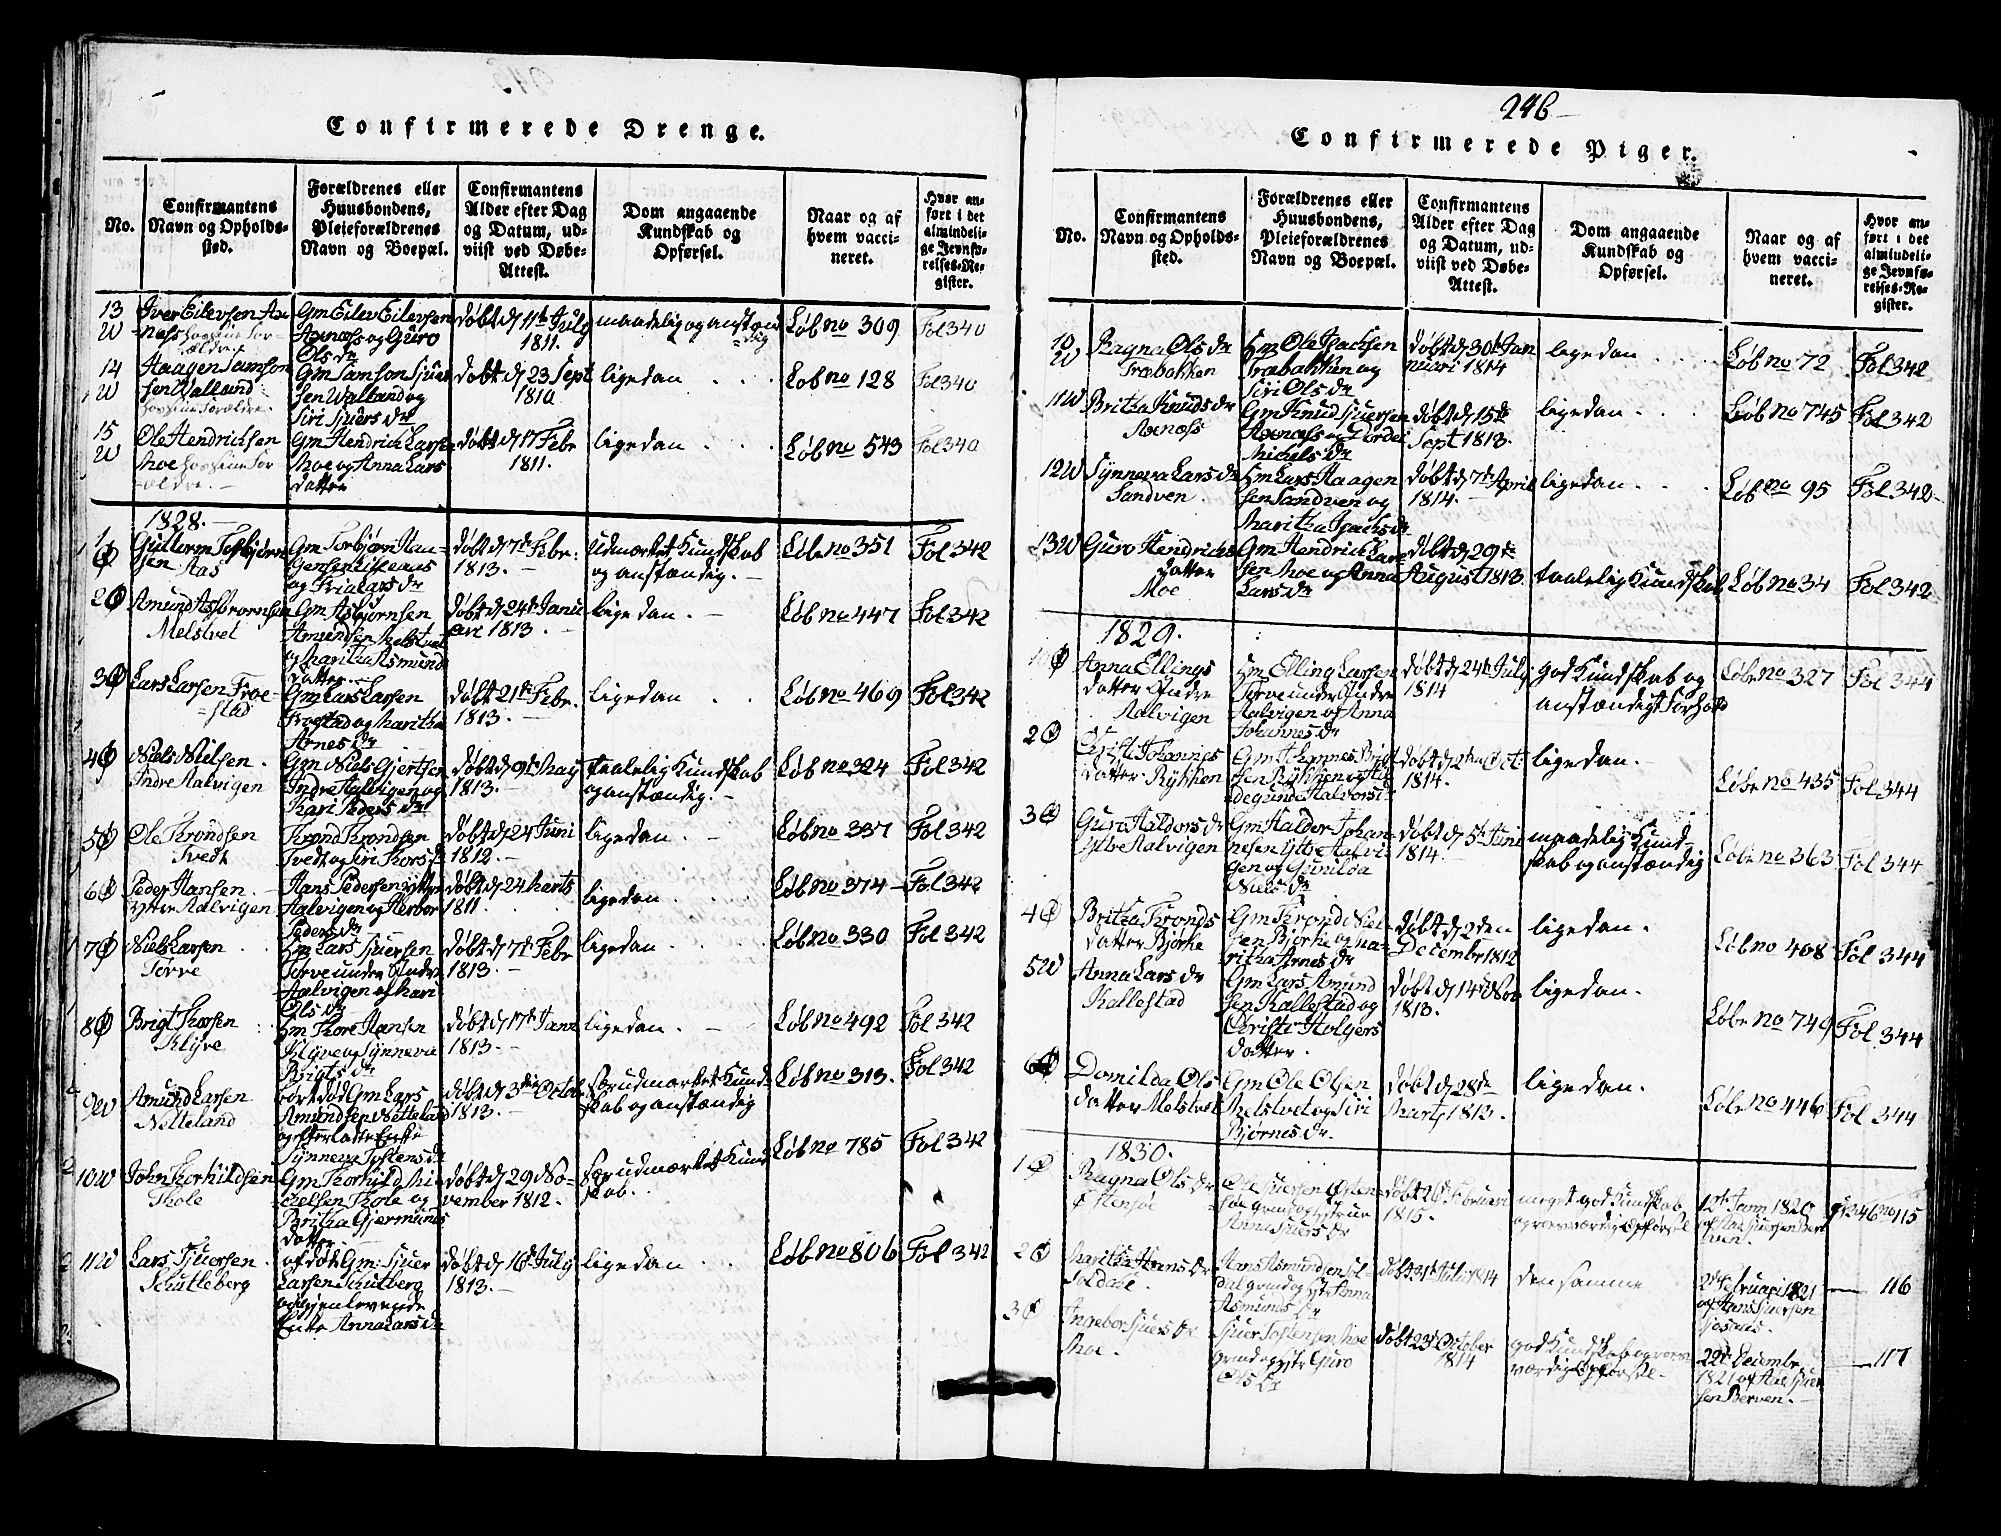 Confirmerede Drenge.
No.
Confirmantens
Navn og Opholds-
sted.
Forældrenes eller
Huusbondens,
Pleieforældrenes
Navn og Boepæl.
Confirmantens
Alder efter Dag
og Datum, ud-
viist ved Døbe-
Attest.
Dom angaaende
Kundskab og
Opførsel.
Naar og af
hvem vacci-
neret.
Hvor an-
ført i det
almindeli-
ge Jevnfø-
relses-Re-
gister.
13
W
Iver Eilevsen Ax-
næss
Gm Eilev Eilevsen
Axnæss og Guro
Ols dr
døbt d 11th July
1811.
maadelig og anstænd
dig
Løb no 309
Fol 340
14
W
Haagen Samson
sen Walland
Gm Samson Sjuer
sen Walland og
Siri Sjuers dr
døbt d 23 Sept
1810
ligedan
Løb no 128
Fol 340
15
W
Ole Hendrichsen
Moe
Gm Hendrich Larse
Moe og Anna Lars
datter
døbt d 17 Febr
1811.
ligedan
Løb no 543
Fol 340
1828.
1
Ø
Gullerm Torbjørn
sen Aas
Gm Torbjørn Han-
sen
og Lars dr
døbt d 7de Febr:
1813.
Udmærket Kundskab
og anstændig.
Løbe no 351
Fol 342
2 Ø
Amund Asbiørnsen
Melstvet
Gm Asbjørnsen
Amundsen Melstvet
og Maritha Asmund
datter
døbt d 24de Janu
ari 1813.
ligedan.
Løb no 447
Fol 342
3 Ø
Lars Larsen Froe-
stad
Gm Lars Larsen
Froestad og Maritha
Arnes dr
døbt 21de Febr.
1813.
ligedan
Løb no 469
Fol 342
4 Ø
Niels Nielsen
Indre Aalvigen
Gm Niels Gjertsen
Indre Aalvigen og
Kari Peders dr
døbt d 9de May
1813.
taalelig Kundskab
og anstændig.
Løb no 324
Fol 342
5 Ø
Ole Throndsen
Tvedt
Thrond Throndsen
Tvedt og Siri Thors dr
døbt d 24 Juni
1812.
ligedan
Løb no 337
Fol 342
6 Ø
Peder Hansen
Ytter Aalvigen
Hans Pedersen Ytter
Aalvigen og Herbor
Peders dr
døbt d 24 Marts
1811.
ligedan
Løb no 374
Fol 342
7 Ø
Niels Larsen
Torve
Gm Lars Sjuersen
Torve under Indre
Aalvigen og Mari
Ols dr
døbt d 7de Febr
1813.
ligedan
Løb no 330
Fol 342
8 Ø
Brigt Thorsen
Klyve
Gm Thore Hansen
Klyve og Synneva
Brigts dr
døbt d 17de Janu
1813.
ligedan
Løb no 492
Fol 342
9 W
Amund Larsen
Netteland
bortdød Gm Lars
Amundsen Netteland
og efterladte Enke
Synneva Tostens dr
døbt d 3die Octob
1813.
særudmærket Kund
skab og anstændig
Løb no 313.
Fol 342
10 W
John Thorkildsen
Thole
Gm Thorkild Mi-
kelsen Thole og
Britha Gjermunds
datter
døbt d 29 No-
vember 1812.
særudmærket Kund
skab.
Løb no 785
Fol 342
11 W
Lars Sjuersen
Skutleberg
afdøde Gm Sjuer
Larsen Skutleberg
og gjenlevende
Enke Anna Lars dr
døbt d 16de July
1813.
ligedan
Løb no 806
Fol 342
246
Confirmerede Piger.
No.
Confirmantens
Navn og Opholds-
sted.
Forældrenes eller
Huusbondens,
Pleieforældrenes
Navn og Boepæl.
Confirmantens
Alder efter Dag
og Datum, ud-
viist ved Døbe-
Attest.
Dom angaaende
Kundskab og
Opførsel.
Naar og af
hvem vacci-
neret.
Hvor an-
ført i det
almindeli-
ge Jevnfø-
relses-Re-
gister.
10
W
Ragna Ols dr
Træbakken
Hm Ole Isachsen
Træbakken og
Siri Ols dr
døbt d 30te Jan
nuari 1814
ligedan
Løb no 72
Fol 342
11 W
Britha Knuds dr
Axnæss
Gm Knud Sjuersen
Axnæss og Dordei
Michels dr
døbt d 15de
Sept 1813.
ligedan
Løb no 745
Fol 342
12 W
Synneva Lars dr
Sandven
Hm Lars Haagen
sen Sandven og
Maritha Isachs dr
døbt d 7de April
1814.
ligedan
Løb no 95
Fol 342
13 W
Guro Hendrichs
datter
Moe
Gm Hendrich Lars
sen Moe og Anna
Lars dr
døbt d 29de
August 1813.
taalelig Kundskab
Løb no 34
Fol 342
1829.
1 Ø
Anna Ellings
datter Indre
Aalvigen
Hm Elling Larsen
Torve under Indre
Aalvigen og Anna
Johannes dr
døbt d 24de July
1814
god Kundskab og
anstændigt Forhold
Løbe no 327
Fol 344
2 Ø
Christi Johannes
datter Rykken
Gm Johannes Brigt
sen Rykken og Hil-
degunde Halvors dr
døbt d 2den Oct
1814.
ligedan.
Løbe no 435
Fol 344
3 Ø
Guro Haldors dr
Ytre Aalvigen
Gm Haldor Johan-
nesen Ytre Aalvi-
gen og Gunilda
Niels dr
døbt d 5te Juni
1814.
maadelig Kund-
skab og anstændig
Løbe no 363
Fol 344
4 Ø
Britha Thronds
datter Bjørke
Gm Thrond Niel-
sen Bjørke og Ma-
ritha Arnes dr
døbt d 2den
December 1812
ligedan.
Løb no 408
Fol 344
5 W
Anna Lars dr
Kallestad
Gm Lars Amund
sen Kallestad og
Christi Holgers
datter.
døbt d 14de Nov
1813.
ligedan.
Løbe no 749
Fol 344
6 Ø
Domilda Ols
datter Melstvet
Gm Ole Olsen
Melstvet og Siri
Bjørnes dr.
døbt d 28de
Marts 1813.
ligedan.
Løbe no 446
Fol 344
1830.
1 Ø
Ragna Ols dr
Østensøe
Ole Sjuersen Østen-
søe grmd og hstrue
Anna Sjuers dr
døbt 26 Februari
1815.
meget god Kundskab
og roesværdig Opførsel
12te Janu 1820
af Aad Sjuersen Ber
ven.
F 346 no 115
2 Ø
Maritha Hans dr
Soldale.
Hans Asmundsen Sol-
dal grmd og hstr Anna
Asmunds dr
døbt 31te Juli 1814
den samme
2de Februari 1821
af Hans Sjuersen
116
3 Ø
Ingebor Sjuers dr
Moe.
Sjuer Tostensen Moe
grmd og hstr Guro
Ols dr
døbt 23de October
1814
god Kundskab og roes
værdig Opførsel
22de December
1821 af Aad Sjuer
sen Berven.
117